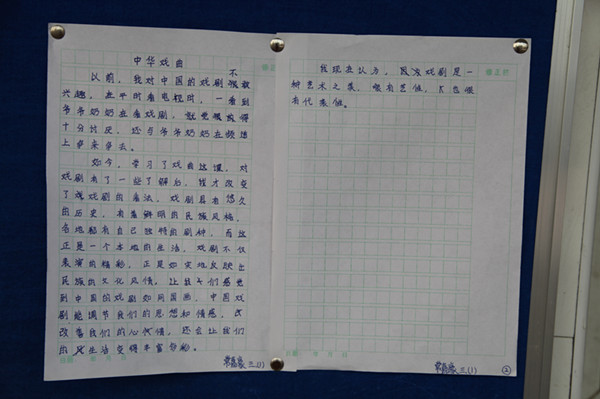 中华戏曲
以前，我对中国的戏剧不很感
兴趣。在平时看电视时，一看到
爷爷奶奶在看戏剧，就觉得
十分讨厌，还与爷爷奶奶在频道
上争来争去。
如今，学习了戏曲这课，对
戏剧有了一些了解后，我才改变
了观戏剧的看法。戏剧具有悠久
的历史，有着鲜明的民族风格，
各地都有自己独特的剧种，而这
正是一个本地的生活。戏剧不仅
表演的精彩，正是如实地反映出
民族的文化风情。让我们感觉
到中国的戏剧如同国画，中国戏
剧能调节我们的思想和情感，
改善我们的心情，还会让我们
的生活变得丰富多彩。
三(1)
我现在认为，戏剧是一
种艺术之美，很有艺术，也很
有代表性。
三(1)
②